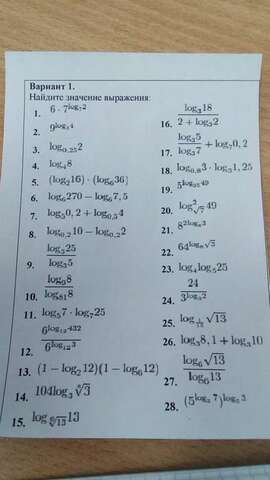 Вариант 1.
Найдите значение выражения:
1. 6 · 7^{log_7 2}
2. 9^{log_3 4}
3. log_{0,25} 2
4. log_4 8
5. (log_2 16) · (log_6 36)
6. log_6 270 − log_6 7,5
7. log_3 0,2 + log_{0,5} 4
8. log_{0,2} 10 − log_{0,2} 2
9. log_3 25 / log_3 5
10. log_9 8 / log_{81} 8
11. log_5 7 · log_7 25
12. 6^{log_{12} 432} / 6^{log_{12} 3}
13. (1 − log_2 12)(1 − log_6 12)
14. 104 log_3 \sqrt[8]{3}
15. log_{\sqrt[6]{13}} 13
16. log_3 18 / 2 + log_3 2
17. log_3 5 / log_3 7 + log_7 0,2
18. log_{0,8} 3 · log_3 1,25
19. 5^{log_{25} 49}
20. log^2_{√7} 49
21. 8^{2 log_8 3}
22. 64^{log_8 √3}
23. log_4 log_5 25
24. 24 / 3^{log_3 2}
25. log_{1/13} √13
26. log_3 8,1 + log_3 10
27. log_6 √13 / log_6 13
28. (5^{log_5 7})^{log_5 3}